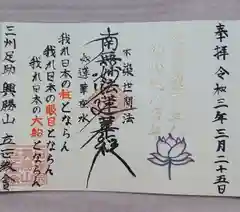 奉拝 令和三年三月二十五日
不染世間法
南無妙法蓮華経
如蓮華在水
我れ日本の柱とならん
我れ日本の眼目とならん
我れ日本の大船とならん
三州足助 興勝山 立正教会